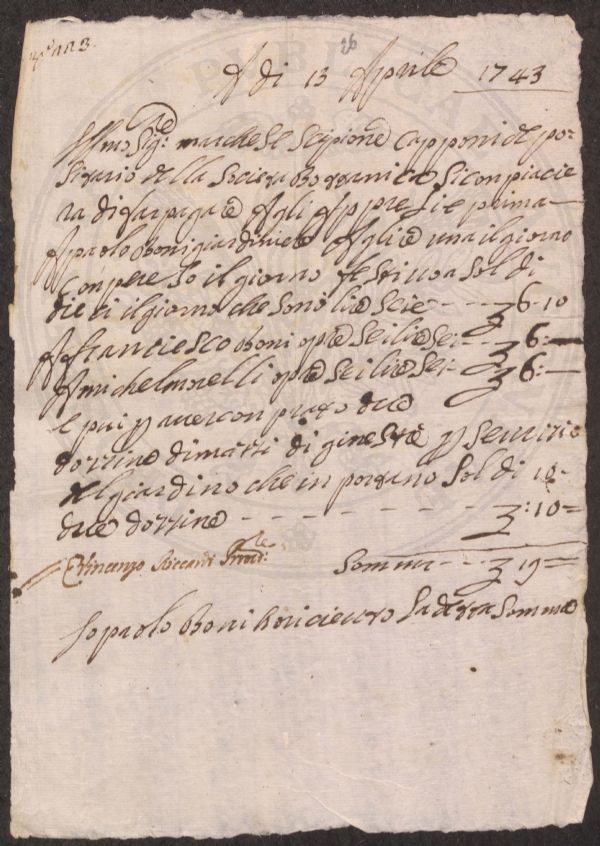 N° 113.
26
A di 13 Aprile 1743
Ill:mo Sig:re marchese Scipione Capponi depo-
sitario della Societa Bottanica Si conpiacie
ra di far pagare Agli Appresiè prima
A paolo boni giardiniere
il giorno Soldi
dieci il giorno che sono lire Seie - - - 6-10
A franciesco boni opre Sei lire Sei - - 6:-
A michel morelli opre Sei lire Sei - - 6:-
e piu p aver conprato due
dozzine di mazzi di ginestre p Servitio
del giardino che in portano Soldi 10-
due dozzine - - - - - - - - :10=
Vincenzo Riccardi Provv:re Somma - - - 19=
Io paolo Boni ho riceuto La detta Somma